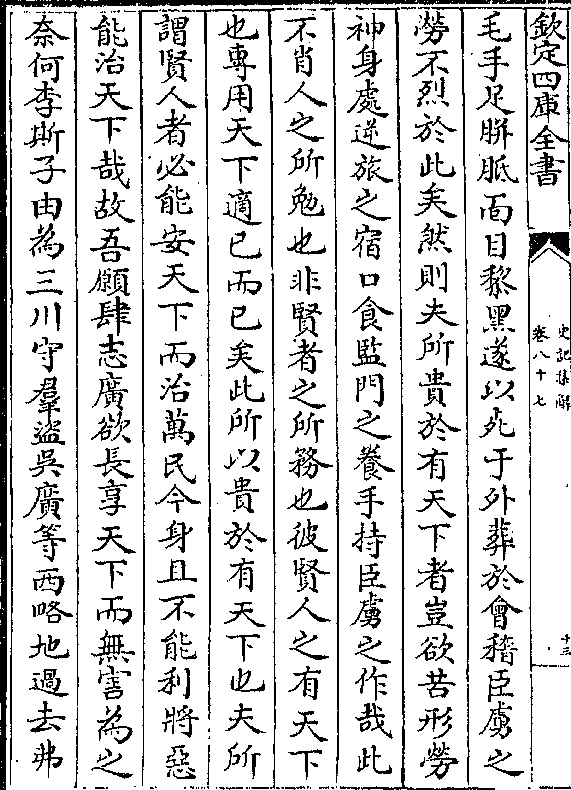 欽定四庫全書
史記集解
卷八十七
十三
毛手足胼胝面目黎黑遂以死于外葬於會稽臣虜之
勞不烈於此矣然則夫所貴於有天下者豈欲苦形勞
神身處逆旅之宿口食監門之養手持臣虜之作哉此
不肖人之所勉也非賢者之所務也彼賢人之有天下
也專用天下適己而已矣此所以貴於有天下也夫所
謂賢人者必能安天下而治萬民今身且不能利將惡
能治天下哉故吾願肆志廣欲長享天下而無害為之
奈何李斯子由為三川守羣盜吳廣等西略地過去弗